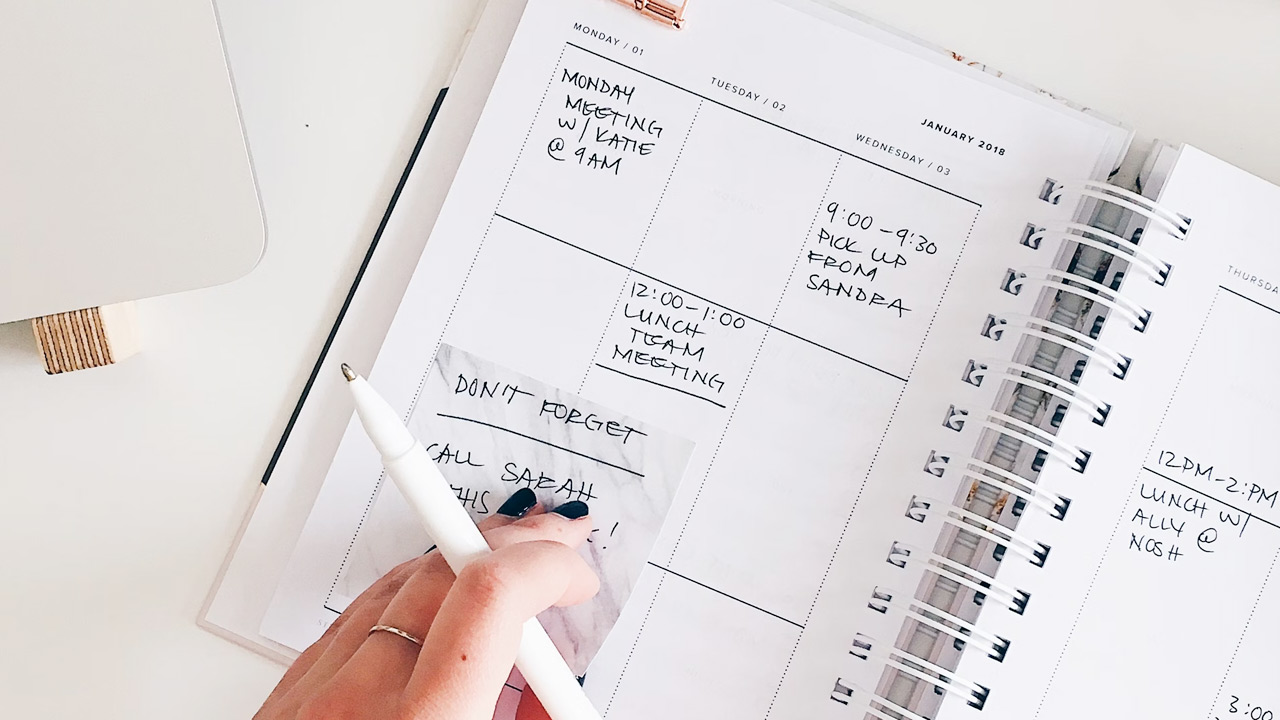 MONDAY / 01
MONDAY
MEETING
W/ KATIE
@ 9AM
TUESDAY / 02
12:00-1:00
LUNCH
TEAM
MEETING
JANUARY 2018
WEDNESDAY / 03
9:00-9:30
PICK UP
FROM
SANDRA
DON'T FORGET
CALL SARAH
THIS
!
THURSDA
12PM-2:PM
LUNCH W/
ALLY @
NOSH
3:00